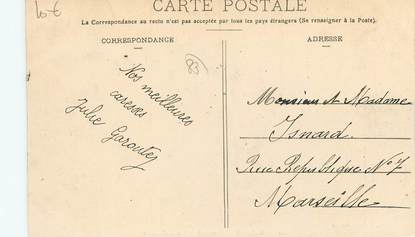 10€
CARTE POSTALE
La Correspondance au recto n'est pas acceptée par tous les pays étrangers (Se renseigner à la Poste).
CORRESPONDANCE
ADRESSE
83
Nos meilleures
caresses
Julie Garoutey
Monsieur et Madame
Isnard
Rue République No 7
Marseille